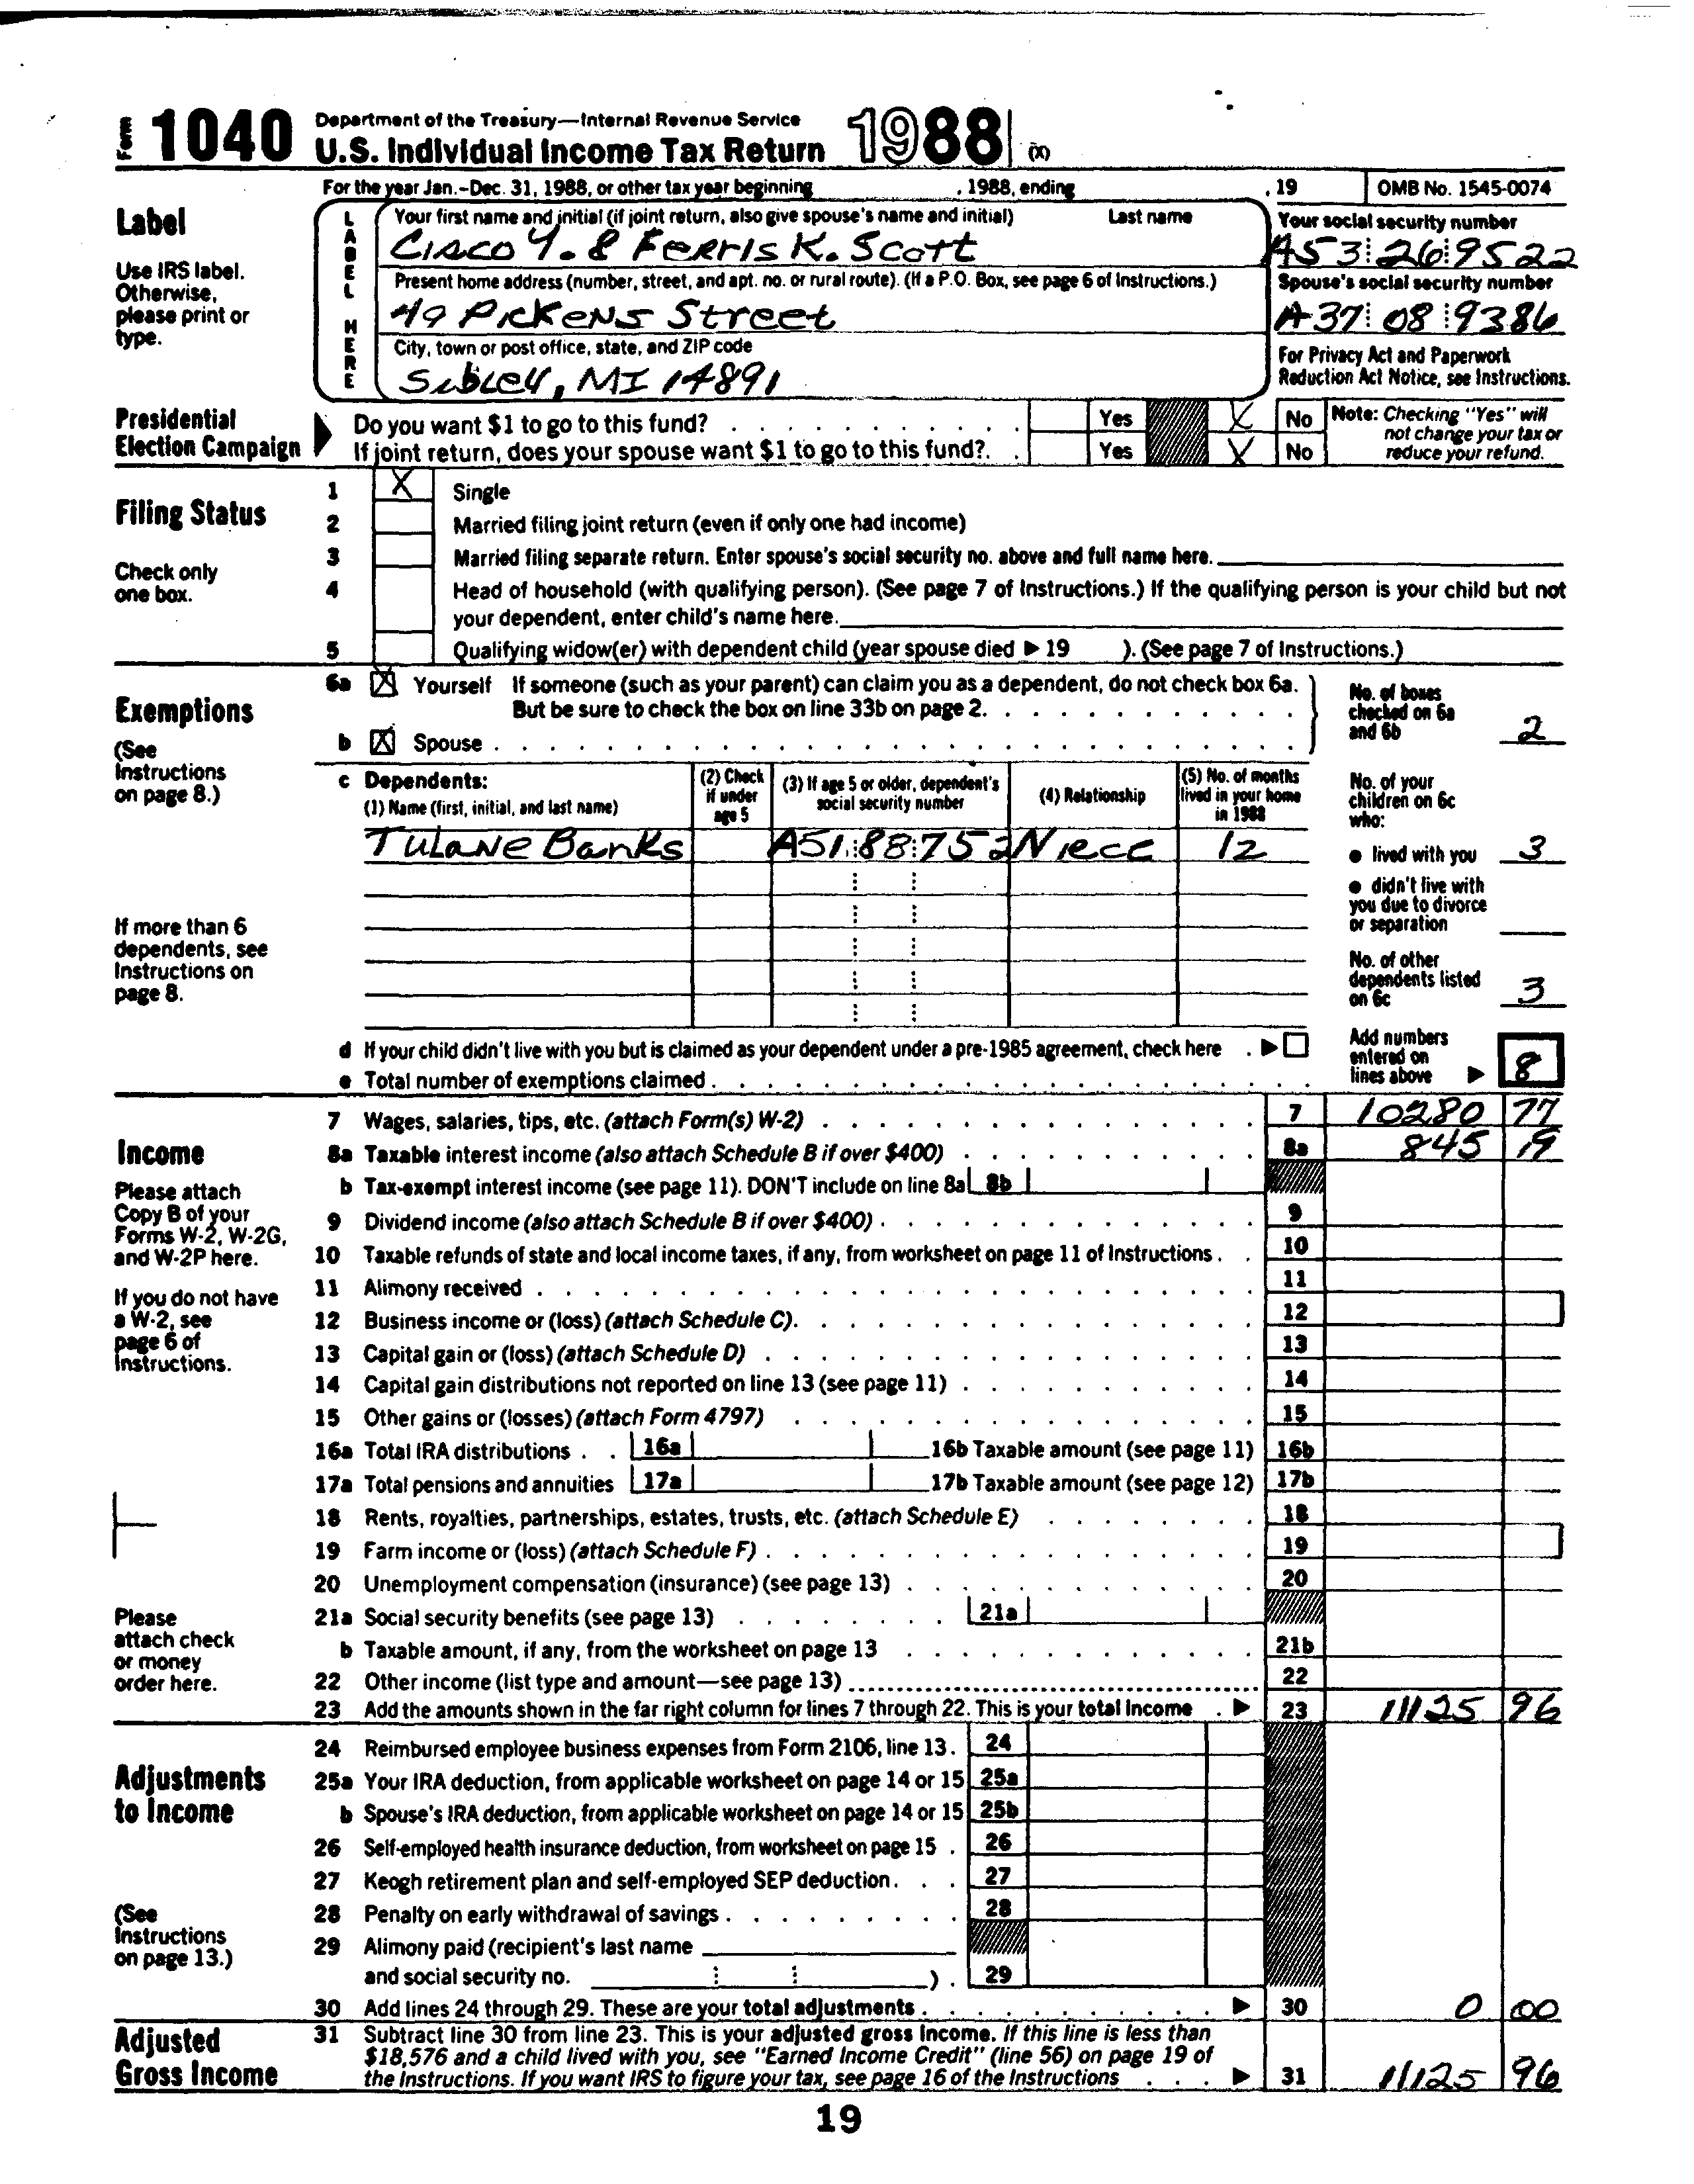 Form 1040 Department of the Treasury—Internal Revenue Service
U.S. Individual Income Tax Return 1988 (X)
For the year Jan.–Dec. 31, 1988, or other tax year beginning , 1988, ending , 19 OMB No. 1545-0074
Label
Use IRS label. Otherwise, please print or type.
LABEL HERE
Your first name and initial (if joint return, also give spouse's name and initial) Last name
Cisco Y. & Ferris K. Scott
Your social security number
A53 26 9522
Present home address (number, street, and apt. no. or rural route). (If a P.O. Box, see page 6 of Instructions.)
49 Pickens Street
Spouse's social security number
A37 08 9386
City, town or post office, state, and ZIP code
Sibley, MI 14891
For Privacy Act and Paperwork Reduction Act Notice, see Instructions.
Presidential Election Campaign
Do you want $1 to go to this fund? Yes X No
If joint return, does your spouse want $1 to go to this fund?. Yes X No
Note: Checking "Yes" will not change your tax or reduce your refund.
Filing Status
Check only one box.
1 X Single
2 Married filing joint return (even if only one had income)
3 Married filing separate return. Enter spouse's social security no. above and full name here.
4 Head of household (with qualifying person). (See page 7 of Instructions.) If the qualifying person is your child but not
your dependent, enter child's name here.
5 Qualifying widow(er) with dependent child (year spouse died ▶ 19 ). (See page 7 of Instructions.)
Exemptions
(See Instructions on page 8.)
6a X Yourself If someone (such as your parent) can claim you as a dependent, do not check box 6a.
But be sure to check the box on line 33b on page 2.
b X Spouse
No. of boxes checked on 6a and 6b 2
c Dependents:
(1) Name (first, initial, and last name)
(2) Check if under age 5
(3) If age 5 or older, dependent's social security number
(4) Relationship
(5) No. of months lived in your home in 1988
Tulane Banks A51 88 752 Niece 12
No. of your children on 6c who:
● lived with you 3
● didn't live with you due to divorce or separation
No. of other dependents listed on 6c 3
If more than 6 dependents, see Instructions on page 8.
d If your child didn't live with you but is claimed as your dependent under a pre-1985 agreement, check here ▶
e Total number of exemptions claimed
Add numbers entered on lines above ▶ 8
Income
Please attach Copy B of your Forms W-2, W-2G, and W-2P here.
If you do not have a W-2, see page 6 of Instructions.
Please attach check or money order here.
7 Wages, salaries, tips, etc. (attach Form(s) W-2) 7 10280 77
8a Taxable interest income (also attach Schedule B if over $400) 8a 845 19
b Tax-exempt interest income (see page 11). DON'T include on line 8a 8b
9 Dividend income (also attach Schedule B if over $400) 9
10 Taxable refunds of state and local income taxes, if any, from worksheet on page 11 of Instructions 10
11 Alimony received 11
12 Business income or (loss) (attach Schedule C) 12
13 Capital gain or (loss) (attach Schedule D) 13
14 Capital gain distributions not reported on line 13 (see page 11) 14
15 Other gains or (losses) (attach Form 4797) 15
16a Total IRA distributions 16a 16b Taxable amount (see page 11) 16b
17a Total pensions and annuities 17a 17b Taxable amount (see page 12) 17b
18 Rents, royalties, partnerships, estates, trusts, etc. (attach Schedule E) 18
19 Farm income or (loss) (attach Schedule F) 19
20 Unemployment compensation (insurance) (see page 13) 20
21a Social security benefits (see page 13) 21a
b Taxable amount, if any, from the worksheet on page 13 21b
22 Other income (list type and amount—see page 13) 22
23 Add the amounts shown in the far right column for lines 7 through 22. This is your total income ▶ 23 11125 96
Adjustments to Income
(See Instructions on page 13.)
24 Reimbursed employee business expenses from Form 2106, line 13. 24
25a Your IRA deduction, from applicable worksheet on page 14 or 15 25a
b Spouse's IRA deduction, from applicable worksheet on page 14 or 15 25b
26 Self-employed health insurance deduction, from worksheet on page 15 26
27 Keogh retirement plan and self-employed SEP deduction 27
28 Penalty on early withdrawal of savings 28
29 Alimony paid (recipient's last name
and social security no. ) 29
30 Add lines 24 through 29. These are your total adjustments ▶ 30 0 00
Adjusted Gross Income
31 Subtract line 30 from line 23. This is your adjusted gross income. If this line is less than
$18,576 and a child lived with you, see "Earned Income Credit" (line 56) on page 19 of
the Instructions. If you want IRS to figure your tax, see page 16 of the Instructions ▶ 31 11125 96
19